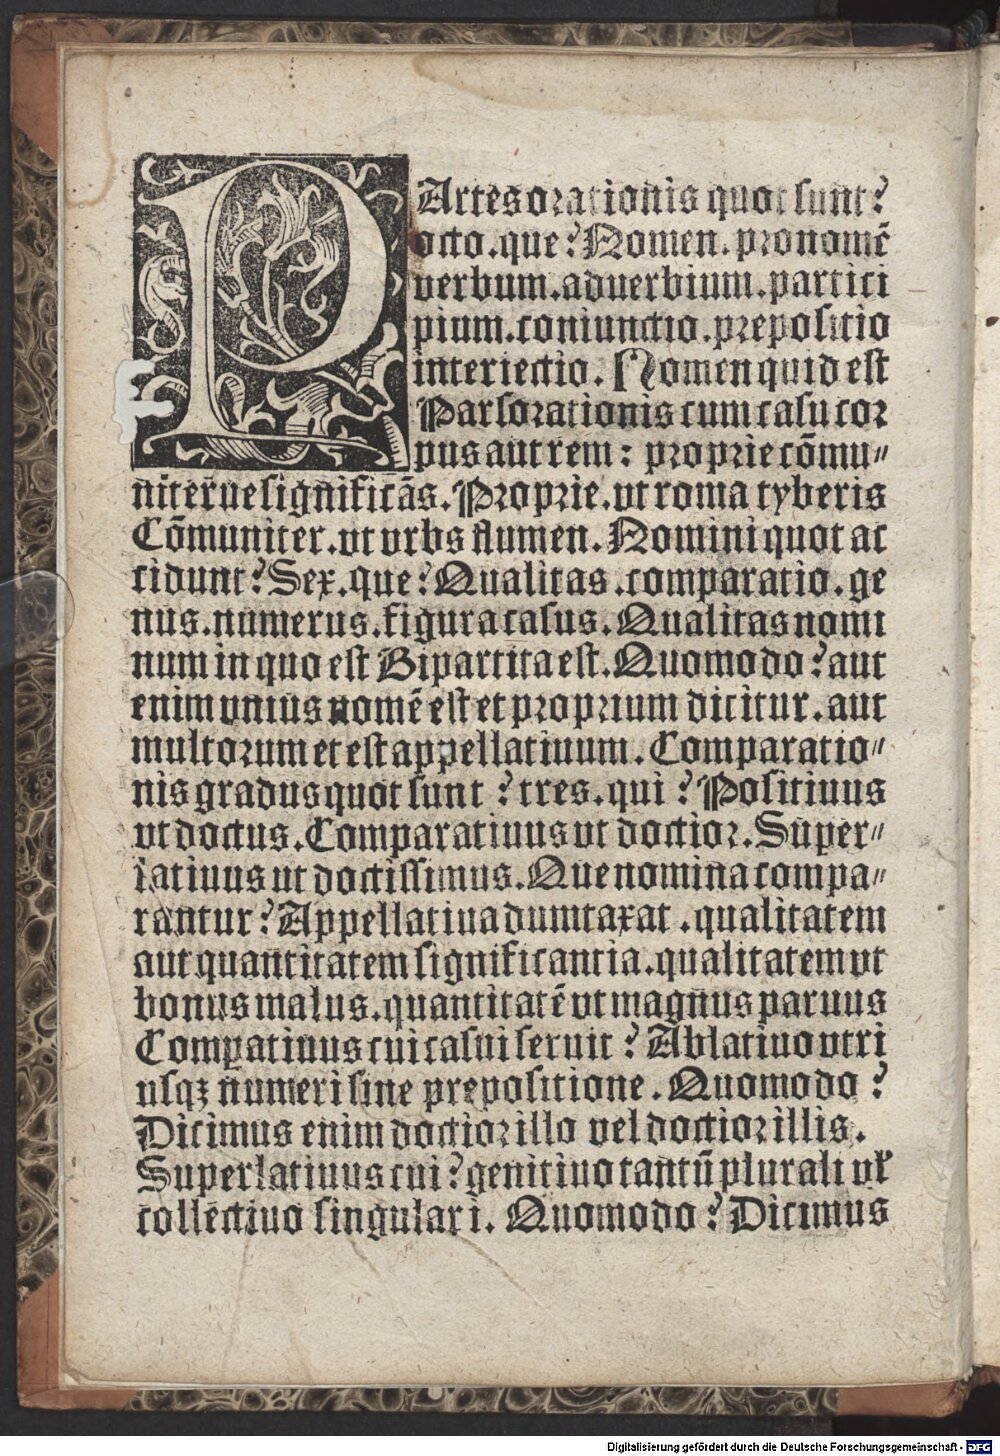 PArtes orationis quot sunt?
octo. que? Nomen. pronomē
verbum. aduerbium. partici
pium. coniunctio. prepositio
interiectio. Nomen quid est
Pars orationis cum casu cor
pus aut rem: proprie cōmu-
niterue significās. Proprie. vt roma tyberis
Cōmuniter. vt vrbs flumen. Nomini quot ac
cidunt? Sex. que? Qualitas. comparatio. ge
nus. numerus. figura casus. Qualitas nomi
num in quo est Bipartita est. Quomodo? aut
enim vnius nomē est et proprium dicitur. aut
multorum et est appellatiuum. Comparatio-
nis gradus quot sunt? tres. qui? Positiuus
vt doctus. Comparatiuus vt doctior. Super-
latiuus ut doctissimus. Que nomina compa-
rantur? Appellatiua dumtaxat. qualitatem
aut quantitatem significantia. qualitatem vt
bonus malus. quantitatē vt magnus paruus
Comꝑatiuus cui casui seruit? Ablatiuo vtri
usqꝫ numeri sine prepositione. Quomodo?
Dicimus enim doctior illo vel doctior illis.
Superlatiuus cui? genitiuo tantū plurali vł
collectiuo singulari. Quomodo? Dicimus
Digitalisierung gefördert durch die Deutsche Forschungsgemeinschaft - DFG